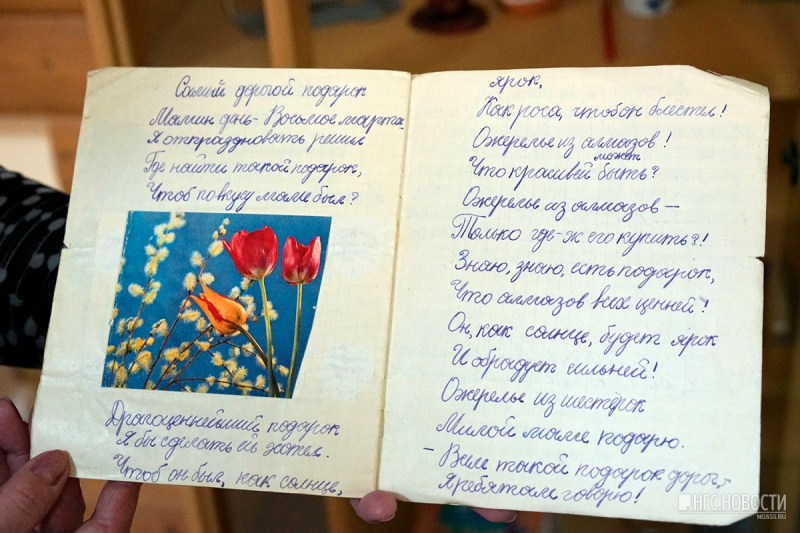 Самый дорогой подарок
Мамин день - Восьмое марта
Я отпраздновать решил
Где найти такой подарок,
Чтоб по вкусу маме был?
Драгоценнейший подарок
Я бы сделать ей хотел.
Чтоб он был, как солнце,
ярок,
Как роса, чтоб он блестел!
Ожерелье из алмазов!
Что красивей может быть?
Ожерелье из алмазов —
Только где-ж его купить?!
Знаю, знаю, есть подарок,
Что алмазов всех ценней!
Он, как солнце, будет ярок
И обрадует сильней!
Ожерелье из шестёрок
Милой маме подарю.
- Вам такой подарок дорог, -
Я ребятам говорю!
НГС НОВОСТИ
NGS55.RU